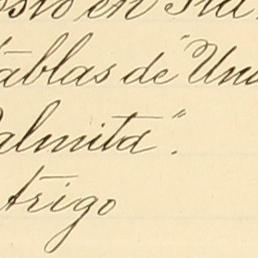 en
tablas de "Un
Palmita".
trigo